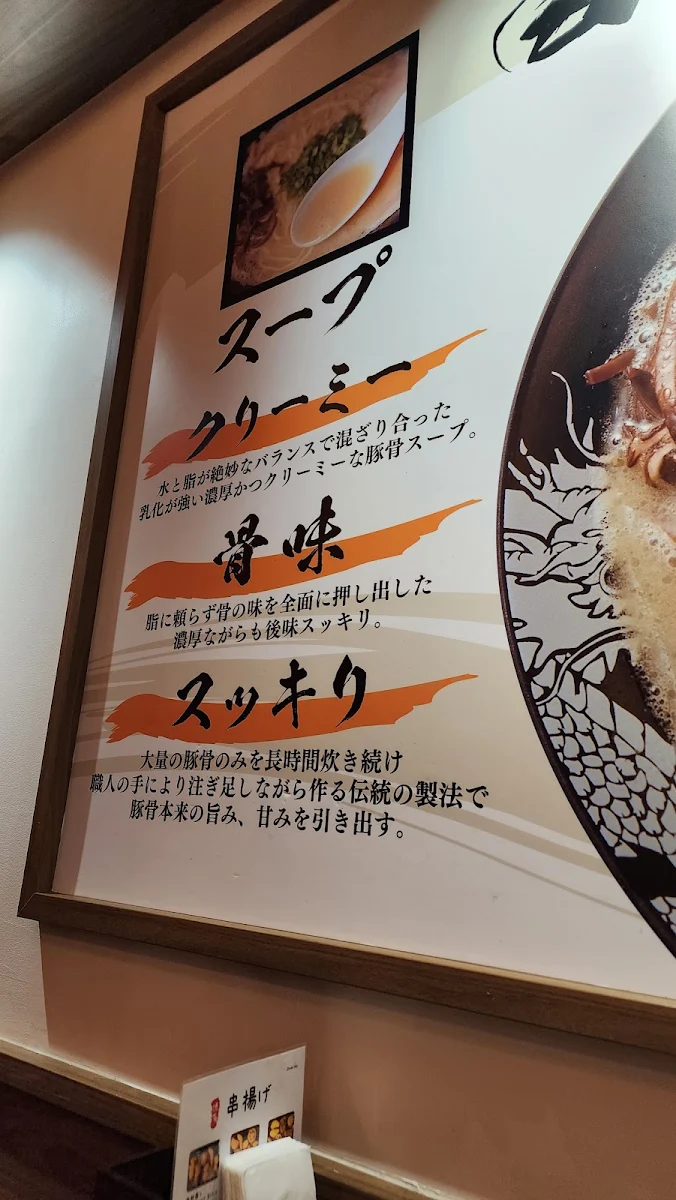 スープ
クリーミー
水と脂が絶妙なバランスで混ざり合った
乳化が強い濃厚かつクリーミーな豚骨スープ。
骨味
脂に頼らず骨の味を全面に押し出した
濃厚ながらも後味スッキリ。
スッキリ
大量の豚骨のみを長時間炊き続け
職人の手により注ぎ足しながら作る伝統の製法で
豚骨本来の旨み、甘みを引き出す。
串揚げ